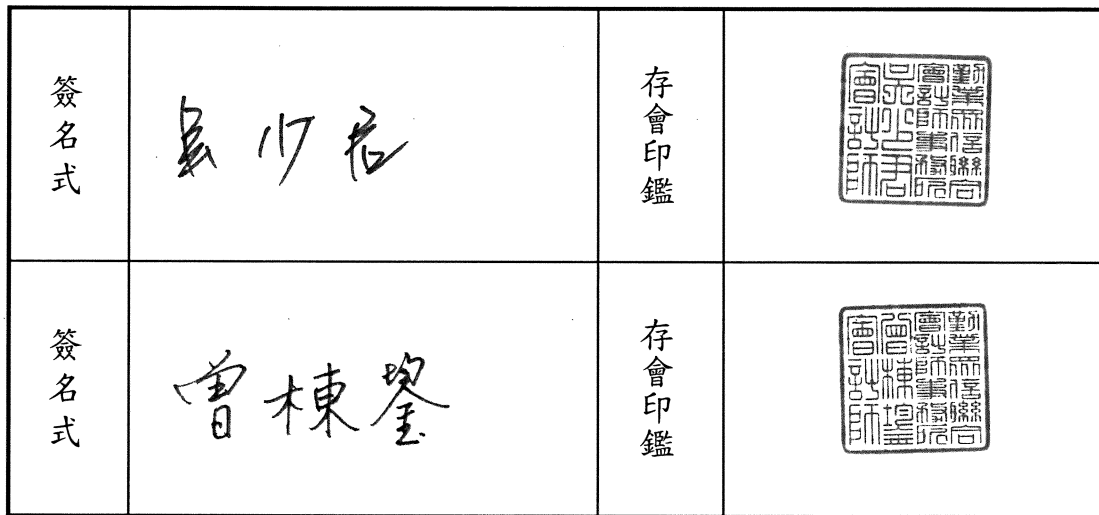 簽名式
吳少君
存會印鑑
勤業眾信聯合
會計師事務所
吳少君
會計師
簽名式
曾棟鋆
存會印鑑
勤業眾信聯合
會計師事務所
曾棟鋆
會計師